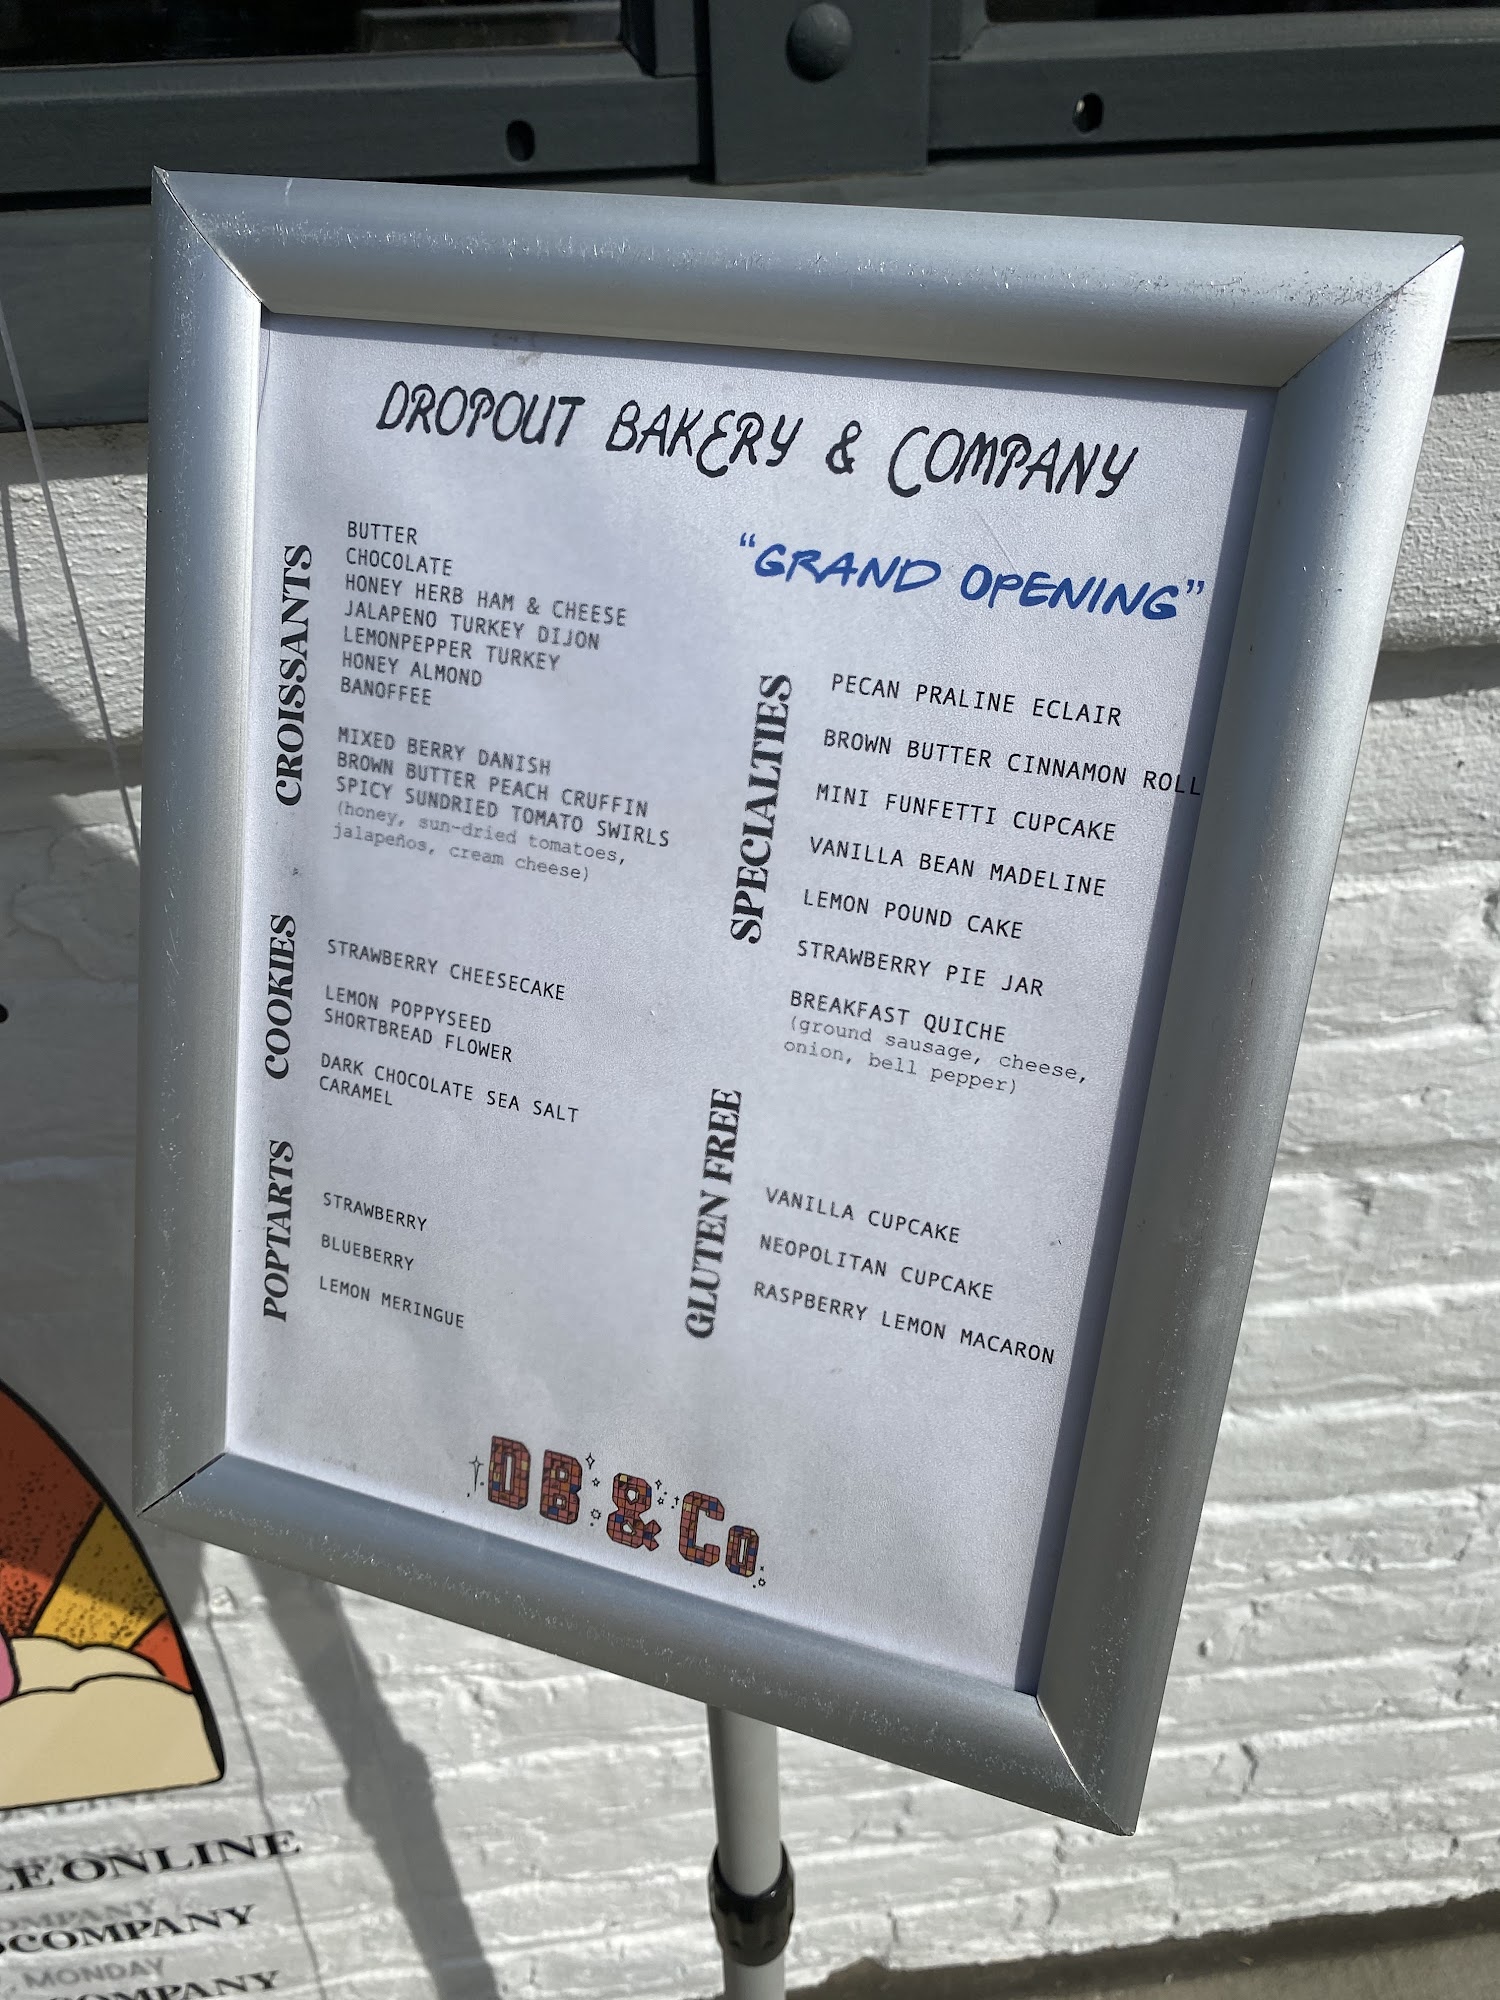 DROPOUT BAKERY & COMPANY
"GRAND OPENING"
CROISSANTS
BUTTER
CHOCOLATE
HONEY HERB HAM & CHEESE
JALAPENO TURKEY DIJON
LEMONPEPPER TURKEY
HONEY ALMOND
BANOFFEE
MIXED BERRY DANISH
BROWN BUTTER PEACH CRUFFIN
SPICY SUNDRIED TOMATO SWIRLS
(honey, sun-dried tomatoes,
jalapeños, cream cheese)
COOKIES
STRAWBERRY CHEESECAKE
LEMON POPPYSEED
SHORTBREAD FLOWER
DARK CHOCOLATE SEA SALT
CARAMEL
POPTARTS
STRAWBERRY
BLUEBERRY
LEMON MERINGUE
SPECIALTIES
PECAN PRALINE ECLAIR
BROWN BUTTER CINNAMON ROLL
MINI FUNFETTI CUPCAKE
VANILLA BEAN MADELINE
LEMON POUND CAKE
STRAWBERRY PIE JAR
BREAKFAST QUICHE
(ground sausage, cheese,
onion, bell pepper)
GLUTEN FREE
VANILLA CUPCAKE
NEOPOLITAN CUPCAKE
RASPBERRY LEMON MACARON
DB & Co
ONLINE
COMPANY
MONDAY
COMPANY